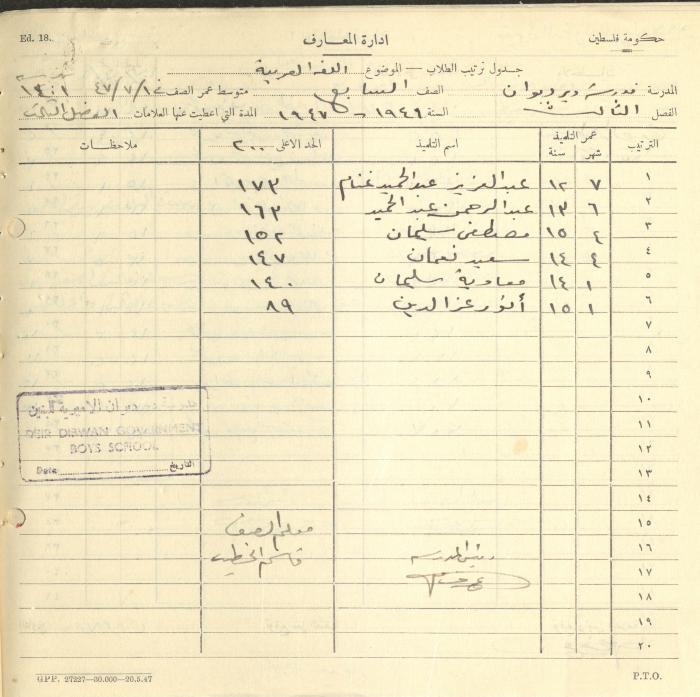 Ed. 18.
ادارة المعارف
حكومة فلسطين
جدول ترتيب الطلاب — الموضوع اللغة العربية
المدرسة ديرديوان الصف السابع متوسط عمر الصف ٤٧/٧/١
الفصل الثالث السنة ١٩٤٦ - ١٩٤٧ المدة التي اعطيت عنها العلامات الفصل الثالث
الترتيب عمر التلميذ شهر سنة اسم التلميذ الحد الاعلى ٢٠٠ ملاحظات
١ ٧ ١٢ عبدالعزيز عبدالحميد غنام ١٧٣
٢ ٦ ١٣ عبدالرحمن عبد الحميد ١٦٣
٣ ٤ ١٥ مصطفى سليمان ١٥٢
٤ ٤ ١٤ سعيد نعمان ١٤٧
٥ ١ ١٤ معاوية سليمان ١٤٠
٦ ١ ١٥ أنور عزالدين ٨٩
٧
٨
٩
١٠
١١
١٢
١٣
١٤
١٥
١٦
١٧
١٨
١٩
٢٠
ديوان الاميرية للبنين
DEIR DIBWAN GOVERNMENT
BOYS SCHOOL
Date التاريخ
معلم الصف
قاسم الخطيب
رئيس المدرسه
GPP. 27227—30.000—20.5.47
P.T.O.